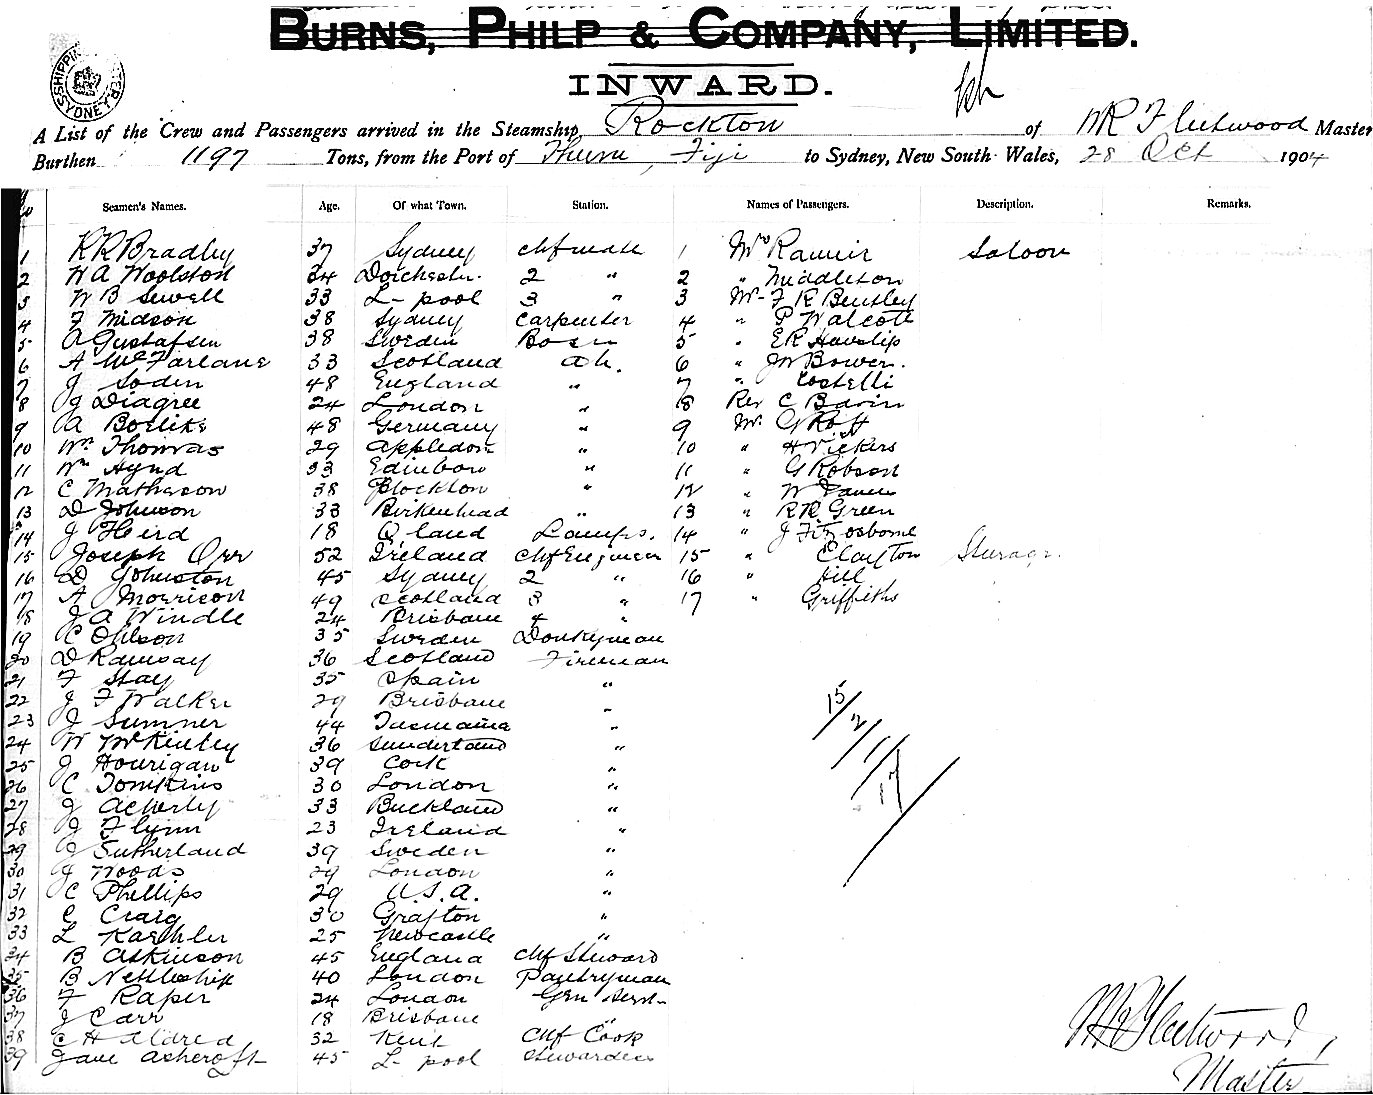 BURNS, PHILP & COMPANY, LIMITED.
INWARD.
SYDNEY
A List of the Crew and Passengers arrived in the Steamship, Rockton of W R Fleetwood Master
Burthen 1197 Tons, from the Port of Fiji to Sydney, New South Wales, 28 Oct 1904
Seamen's Names. Age. Of what Town. Station. Names of Passengers. Description. Remarks.
1 R R Bradley 37 Sydney chf mate 1 Saloon
2 H A Woolston 34 Dorchester. 2 " 2 " Middleton
3 W B Sewell 33 L- pool 3 " 3 Mr F R Bentley
4 F Midson 38 Sydney Carpenter 4 " P Walcott
5 A Gustafsen 38 Sweden Bosn 5 " E R
6 A McFarlane 33 Scotland ab. 6 " J W Bower.
7 J Soden 48 England " 7 " Costelli
8 J Diagree 24 London " 8 Rev C
9 A 48 Germany " 9 Mr. G
10 Wm Thomas 29 Appledore " 10 " H Vickers
11 Wm Hynd 33 Edinboro " 11 " G Robson
12 C Matheson 38 Stockton " 12 " W
13 D Johnson 33 Birkenhead " 13 " R R Green
14 J Heird 18 Q land Lamps. 14 " J Fitzosborne
15 Joseph Orr 52 Ireland Chf Engineer 15 " Clayton Steerage
16 D Johnston 45 Sydney 2 " 16 " Hill
17 A Morrison 49 Scotland 3 " 17 " Griffiths
18 J A Windle 24 Brisbane 4 "
19 C Ohlson 35 Sweden Donkeyman
20 D Ramsay 36 Scotland Fireman
21 F Stay 35 Spain "
22 J F Walker 29 Brisbane "
23 J Sumner 44 Tasmania "
24 W McKinley 36 Sunderland "
25 J Hourigan 39 Cork "
26 C Tomkins 30 London "
27 J Acherly 33 Buckland "
28 J Flynn 23 Ireland "
29 J Sutherland 39 Sweden "
30 J Woods 29 London "
31 C Phillips 29 U.S.A. "
32 C Craig 30 Grafton "
33 L Kaehler 25 Newcastle "
34 B Atkinson 45 England chf Steward
35 B Nettleship 40 London Pantryman
36 F Raper 24 London Gen Servt
37 J Carr 18 Brisbane "
38 C H Aldred 32 Kent Chf Cook
39 Jane Ashcroft 45 L- pool Stewardess
15/2/1/17/
W R Fleetwood,
Master